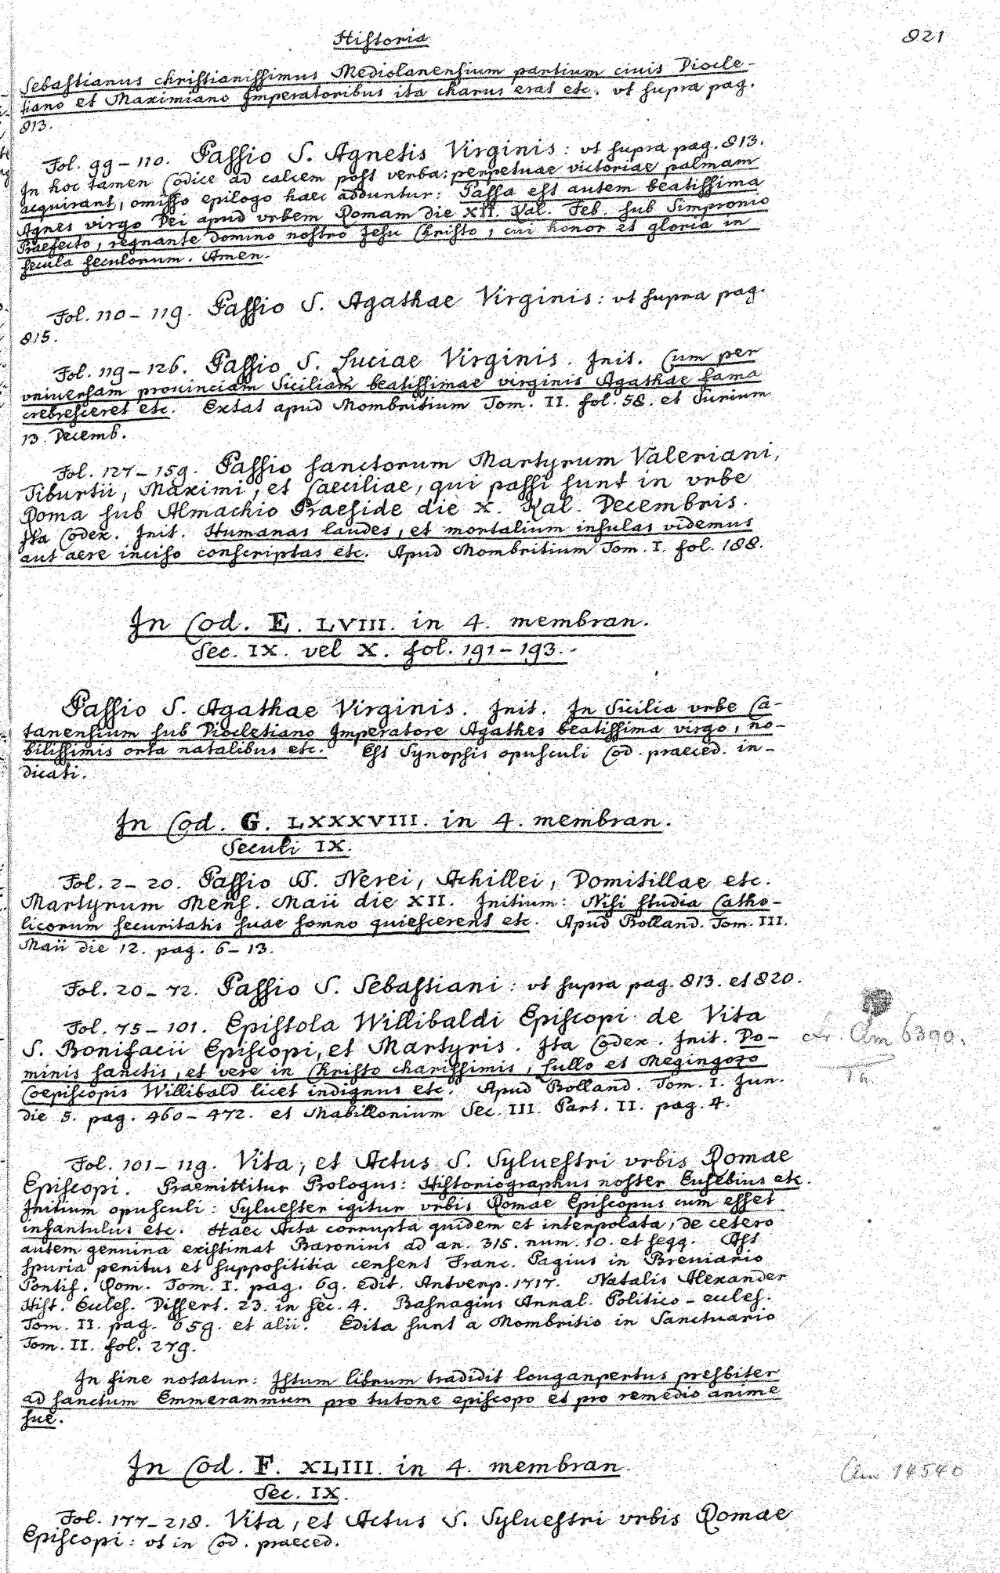 Historia
821
Sebastianus christianissimus Mediolanensium partium ciuis Diocle-
tiano et Maximiano Imperatoribus ita charus erat etc. vt supra pag.
813.
Fol. 99-110. Passio S. Agnetis Virginis: vt supra pag. 813.
In hoc tamen Codice ad calcem post verba: perpetuae victoriae palmam
acquirant, omisso epilogo haec adduntur: Passa est autem beatissima
Agnes virgo Dei apud vrbem Romam die XII. Kal. Feb. sub Simpronio
Praefecto, regnante domino nostro Jesu Christo, cui honor et gloria in
secula seculorum. Amen.
Fol. 110-119. Passio S. Agathae Virginis: vt supra pag.
815.
Fol. 119-126. Passio S. Luciae Virginis. Init. Cum per
vniuersam prouinciam Siciliam beatissimae virginis Agathae fama
crebresceret etc. Extat apud Mombritium Tom. II. fol. 58. et Surium
13. Decemb.
Fol. 127-159. Passio sanctorum Martyrum Valeriani,
Tiburtii, Maximi, et Caeciliae, qui passi sunt in vrbe
Roma sub Almachio Praeside die X. Kal. Decembris.
Ita Codex. Init. Humanas laudes, et mortalium insulas videmus
aut aere inciso conscriptas etc. Apud Mombritium Tom. I. fol. 188.
In Cod. E. LVIII. in 4. membran.
Sec. IX. vel X. fol. 191-193.
Passio S. Agathae Virginis. Init. In Sicilia vrbe Ca-
tanensium sub Diocletiano Imperatore Agathes beatissima virgo, no-
bilissimis orta natalibus etc. Est Synopsis opusculi Cod. praeced. in-
dicati.
In Cod. G. LXXXVIII. in 4. membran.
Seculi IX.
Fol. 2-20. Passio SS. Nerei, Achillei, Domitillae etc.
Martyrum Mens. Maii die XII. Initium: Nisi studia Catho-
licorum securitatis suae somno quiescerent etc. Apud Bolland. Tom. III.
Maii die 12. pag. 6-13.
Fol. 20-72. Passio S. Sebastiani: vt supra pag. 813. et 820.
Fol. 75-101. Epistola Willibaldi Episcopi de Vita
S. Bonifacii Episcopi, et Martyris. Ita Codex. Init. Do-
minis sanctis, et vere in Christo charissimis, sullo et Megingozo
Coepiscopis Willibald licet indignus etc. Apud Bolland. Tom. I. Jun.
die 5. pag. 460-472. et Mabillonium Sec. III. Part. II. pag. 4.
Clm 6390.
Fol. 101-119. Vita, et Actus S. Syluestri vrbis Romae
Episcopi. Praemittitur Prologus: Historiographus noster Eusebius etc.
Initium opusculi: Syluester igitur vrbis Romae Episcopus cum esset
infantulus etc. Haec Acta corrupta quidem et interpolata, de cetero
autem genuina existimat Baronius ad an. 315. num. 10. et seqq. Ast
spuria penitus et supposititia censent Franc. Pagius in Breuiario
Pontif. Rom. Tom. I. pag. 69. edit. Antverp. 1717. Natalis Alexander
Hist. Eccles. Dissert. 23. in sec. 4. Basnagius Annal. Politico-eccles.
Tom. II. pag. 659. et alii. Edita sunt a Mombritio in Sanctuario
Tom. II. fol. 279.
In fine notatur: Istum librum tradidit louganpertus presbiter
ad sanctum Emmerammum pro tutone episcopo et pro remedio anime
sue.
In Cod. F. XLIII. in 4. membran.
Sec. IX.
Clm 14540
Fol. 177-218. Vita, et Actus S. Syluestri vrbis Romae
Episcopi: vt in Cod. praeced.